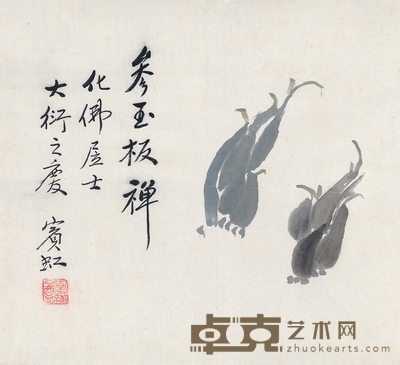 参玉板禅
化佛居士
大衍之慶
賓虹
卓克艺术网
zhuokearts.com